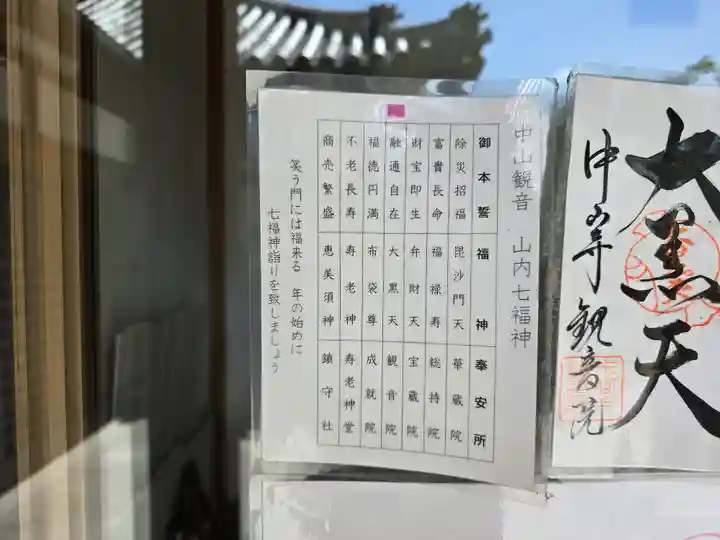 大黒天
中山寺観音院
中山観音 山内七福神
御本誓 福神 奉安所
除災招福 毘沙門天 華蔵院
富貴長命 福禄寿 総持院
財宝即生 弁財天 宝蔵院
融通自在 大黒天 観音院
福徳円満 布袋尊 成就院
不老長寿 寿老神 寿老神堂
商売繁盛 恵美須神 鎮守社
笑う門には福来る 年の始めに
七福神詣りを致しましょう